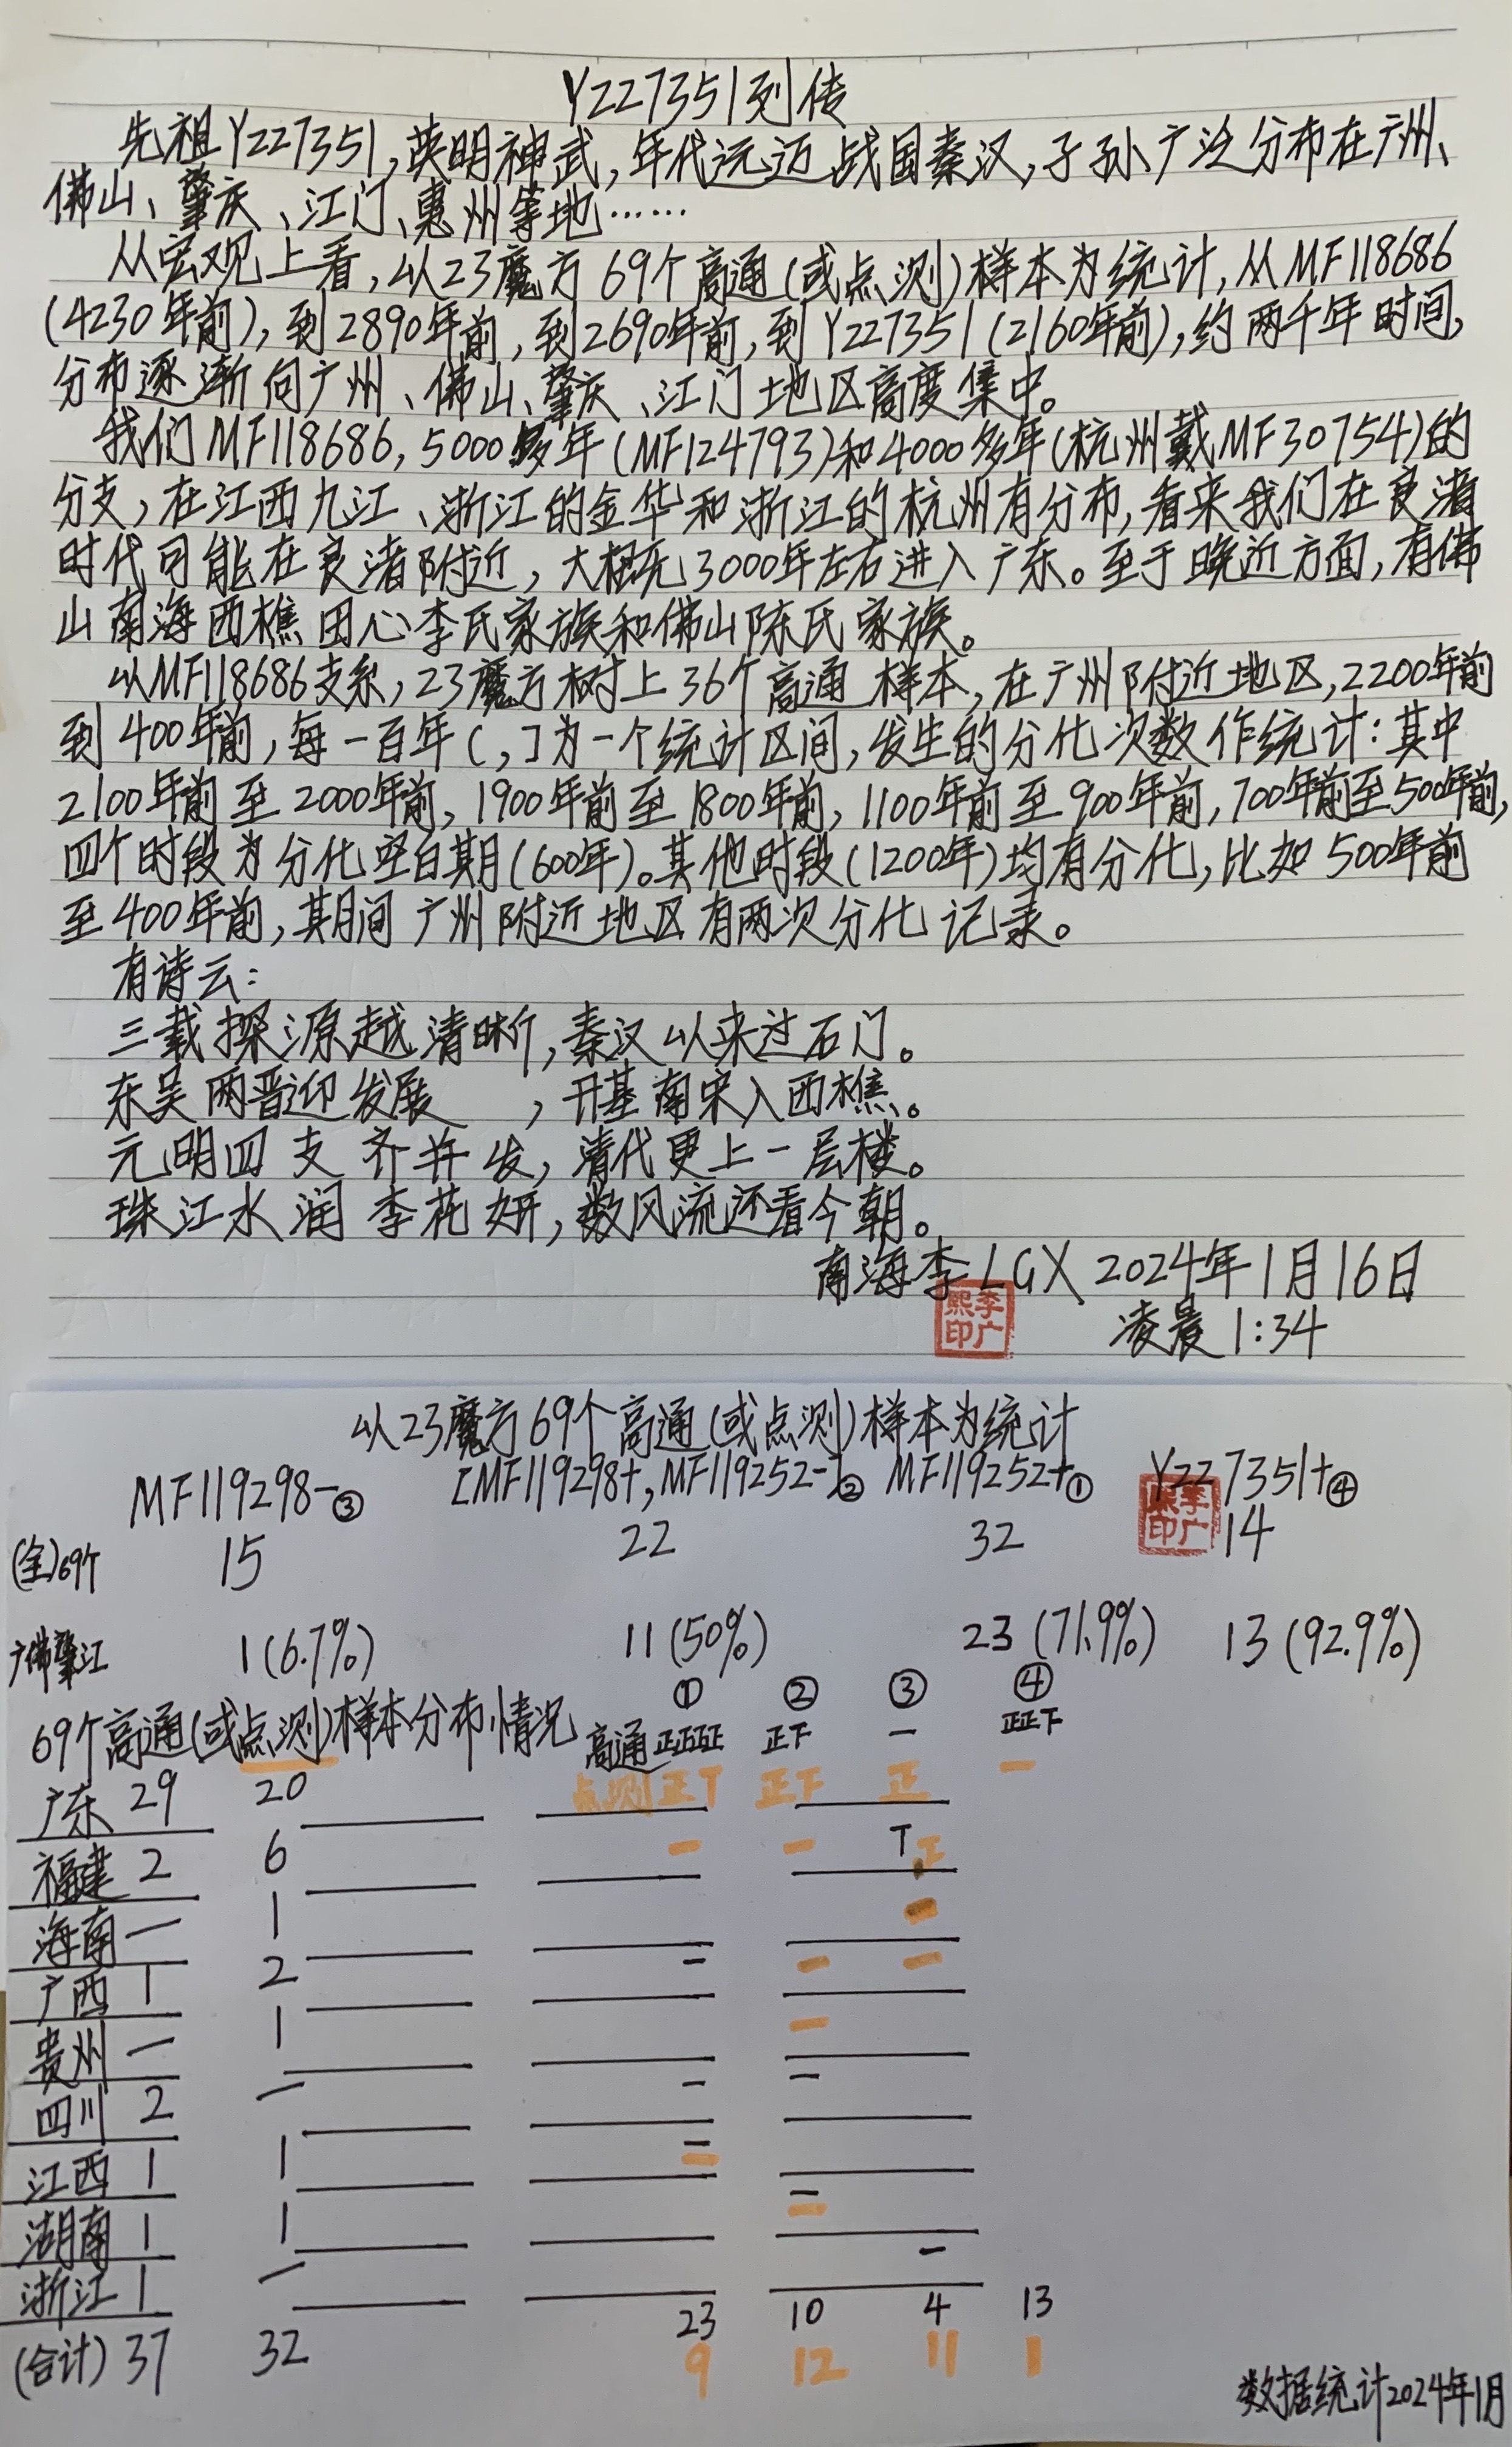 Y227351列传
先祖Y227351,英明神武,年代远迈战国秦汉,子孙广泛分布在广州、
佛山、肇庆、江门、惠州等地……
从宏观上看,以23魔方69个高通(或点测)样本为统计,从MF118686
(4230年前),到2890年前,到2690年前,到Y227351(2160年前),约两千年时间,
分布逐渐向广州、佛山、肇庆、江门地区高度集中。
我们MF118686,5000多年(MF124793)和4000多年(杭州戴MF30754)的
分支,在江西九江、浙江的金华和浙江的杭州有分布,看来我们在良渚
时代可能在良渚附近,大概先3000年左右进入广东。至于晚近方面,有佛
山南海西樵田心李氏家族和佛山陈氏家族。
以MF118686支系,23魔方树上36个高通样本,在广州附近地区,2200年前
到400年前,每一百年(,]为一个统计区间,发生的分化次数作统计:其中
2100年前至2000年前,1900年前至1800年前,1100年前至900年前,700年前至500年前,
四个时段为分化空白期(600年)。其他时段(1200年)均有分化,比如500年前
至400年前,期间广州附近地区有两次分化记录。
有诗云:
三载探源越清晰,秦汉以来过石门。
东吴两晋迎发展,开基南宋入西樵。
元明四支齐并发,清代更上一层楼。
珠江水润李花妍,数风流还看今朝。
南海李LGX 2024年1月16日
熙李
印广
凌晨1:34
以23魔方69个高通(或点测)样本为统计
MF119298-③ [MF119298+,MF119252-]② MF119252+① Y227351+④
熙李
印广
(全)69个 15 22 32 14
广佛肇江 1(6.7%) 11(50%) 23(71.9%) 13(92.9%)
① ② ③ ④
69个高通(或点测)样本分布情况 高通 正正正正 正下 一 正正下
广东 29 20 点测 正T 正下 正 一
福建 2 6 一 一 T 正
海南 一 1 一
广西 1 2 一 一 一
贵州 一 1 一
四川 2 一 一 一
江西 1 1 一 一
湖南 1 1 一 一
浙江 1 一 一
23 10 4 13
(合计) 37 32 9 12 11 1
数据统计2024年1月